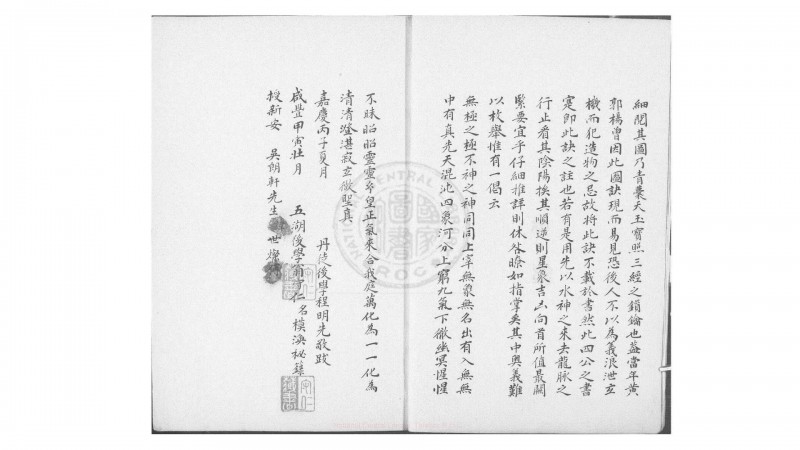 細閱其圖乃青囊天玉寶照三經之鎖鑰也蓋當年黃
郭楊曾因此圖訣現而易見恐後人不以為義浪泄玄
機而犯造物之忌故將此訣不載於書然此四公之書
寔即此訣之註也若有是用先以水神之來去龍脉之
行止看其陰陽挨其順逆則星象吉凶向首所值最關
緊要宜乎仔細推詳則休咎瞭如指掌奚其中奧義難
以枚舉惟有一偈云
無極之極不神之神同同上宰無象無名出有入無無
中有真先天混沌四象河分上窮九氣下徹幽冥惺惺
不昧昭昭靈靈卒望正氣來合我庭萬化為一一化為
清清澄湛寂玄微聖真
嘉慶丙子夏月
丹徒後學程明先敬跋
咸豐甲寅壯月
五湖後學 仁名模漁秘錄
授新安 吳朗軒先生 世燦
NATIONAL CENTRAL LIBRARY R.O.C.